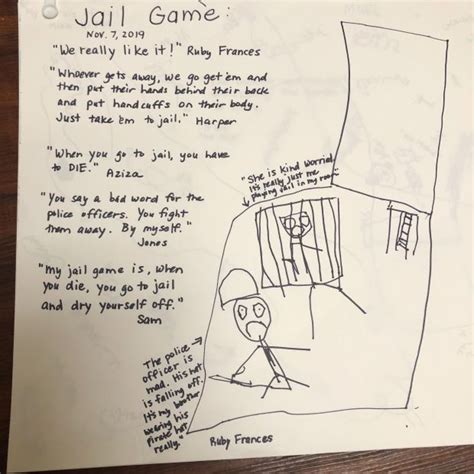 Jail Game:
Nov. 7, 2019
"We really like it!" Ruby Frances
"Whoever gets away, we go get 'em and
then put their hands behind their back
and put handcuffs on their body.
Just take 'em to jail." Harper
"When you go to jail, you have
to DIE." Aziza
"She is kind worried.
It's really just me
playing jail in my room."
"You say a bad word for the
police officers. You fight
them away. By myself."
Jones
"My jail game is, when
you die, you go to jail
and dry yourself off."
Sam
"The police
officer is
mad. His hat
is falling off.
It's my brother
wearing his
pirate hat
really."
Ruby Frances